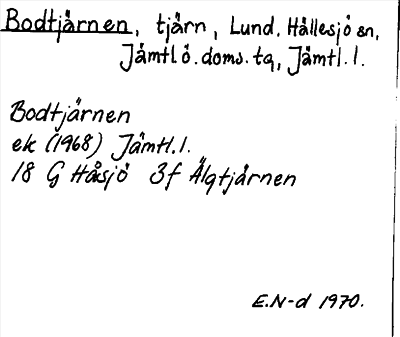 Bodtjärnen, tjärn, Lund, Hällesjö sn,
Jämtl ö. doms. tg, Jämtl. l.
Bodtjärnen
ek (1968) Jämtl. l.
18 G Håsjö 3f Älgtjärnen
E.N-d 1970.